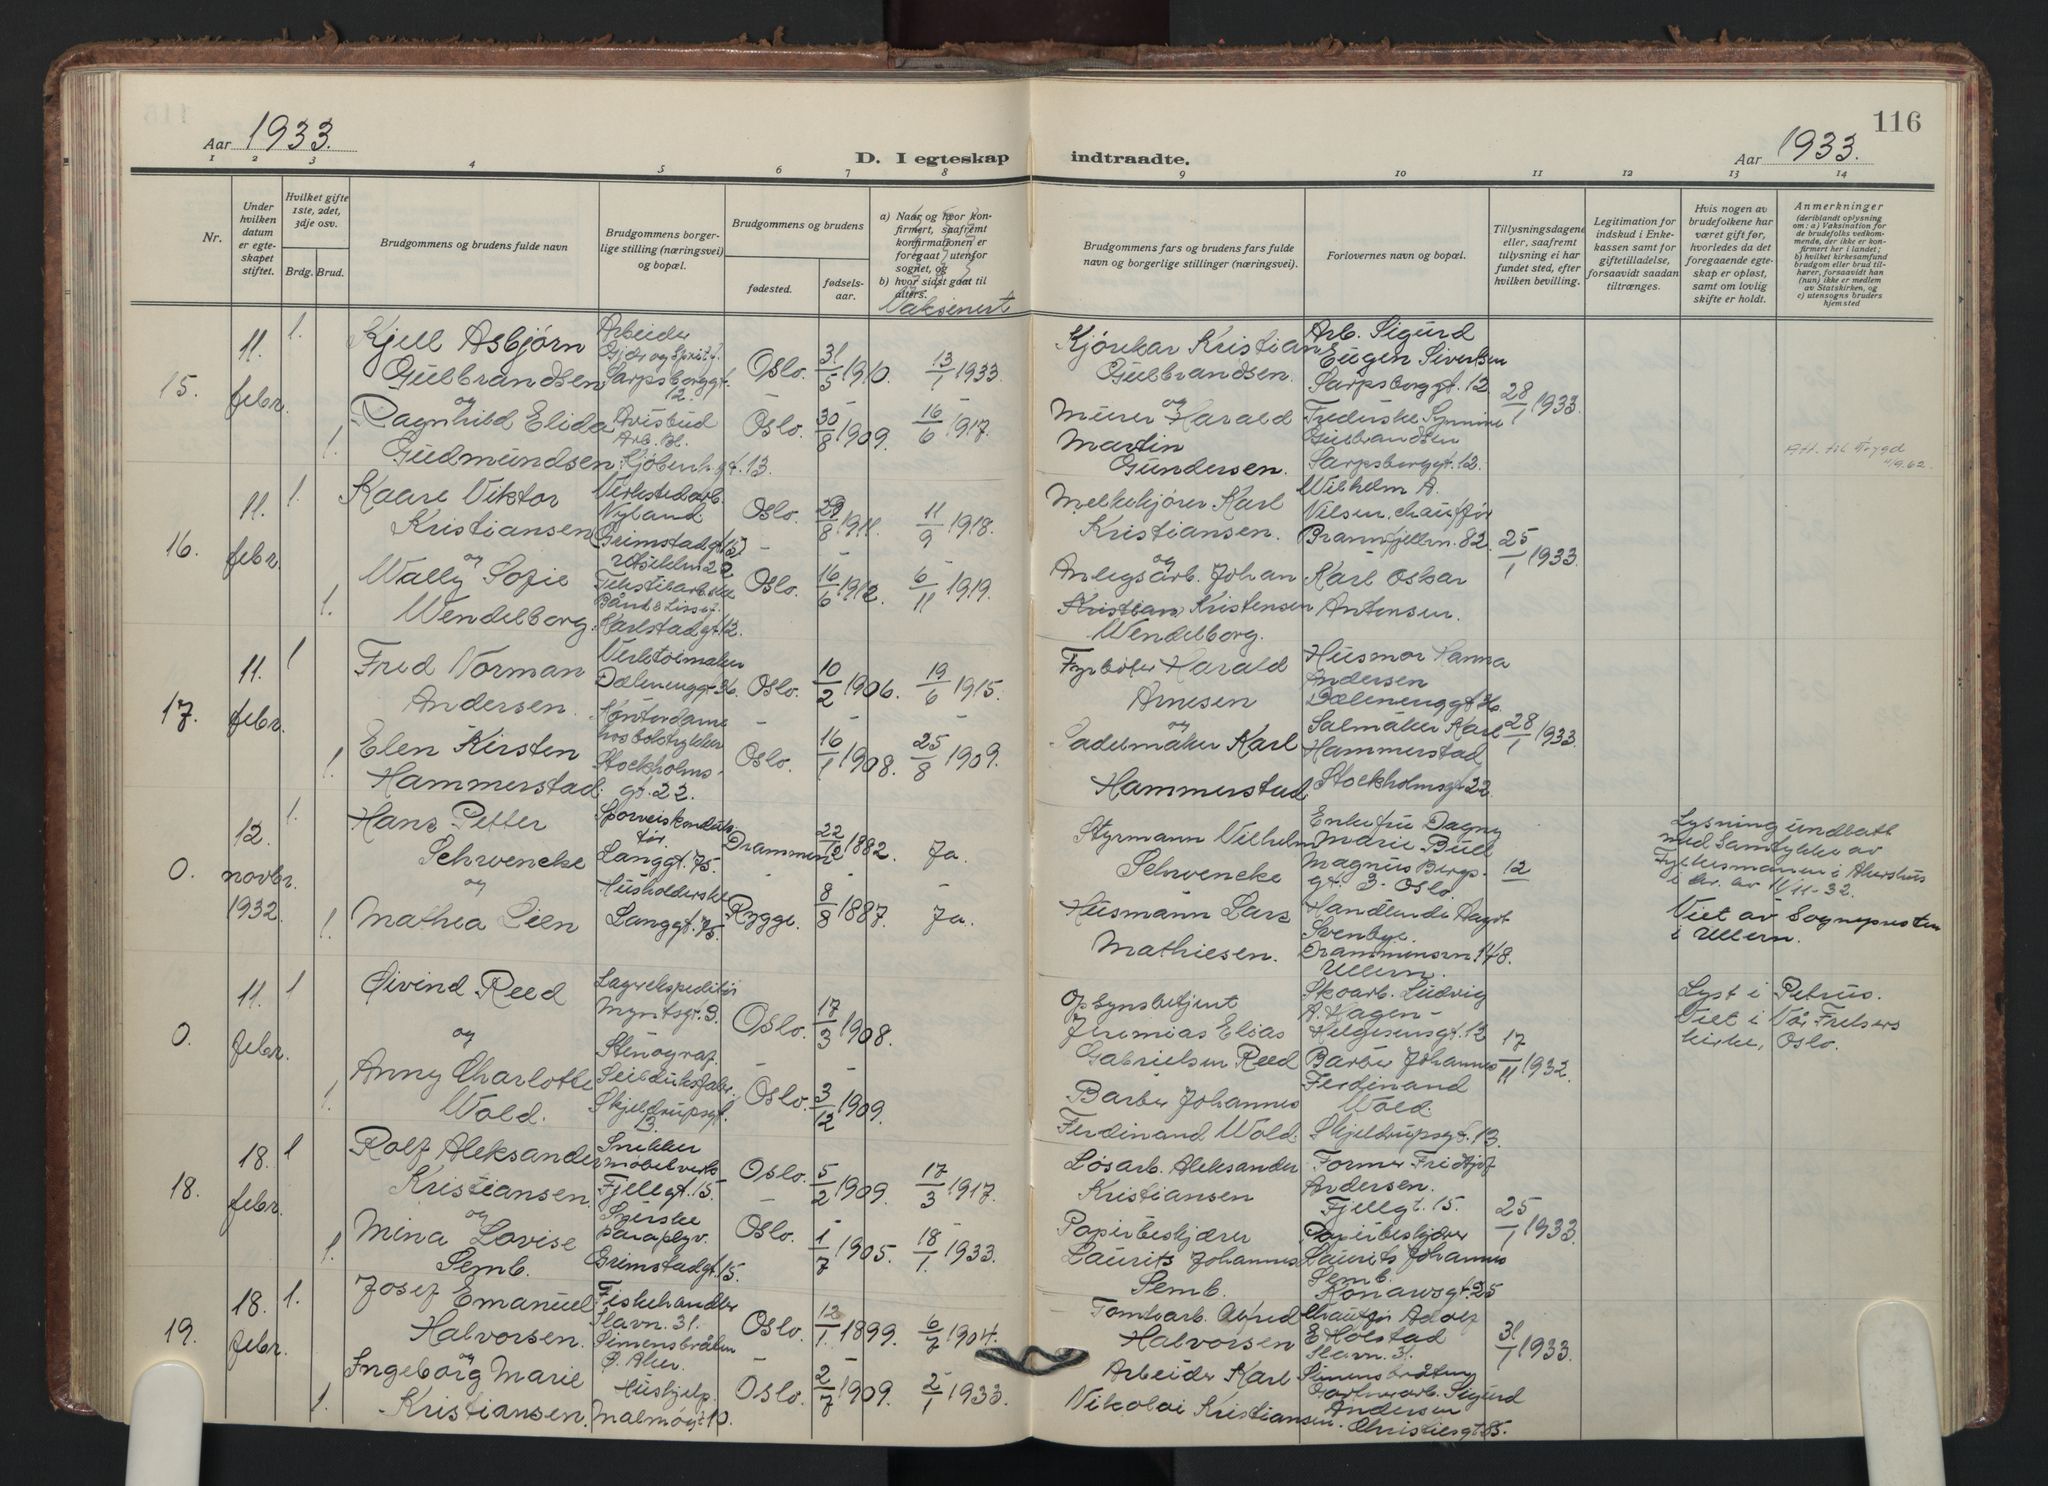 116
Aar 1933.
D. I egteskap indtraadte.
Aar 1933.
1 2 3 4 5 6 7 8 9 10 11 12 13 14
Nr.
Under hvilken datum er egteskapet stiftet.
Hvilket gifte 1ste, 2det, 3dje osv.
Brdg. Brud.
Brudgommens og brudens fulde navn
Brudgommens borgerlige stilling (næringsvei) og bopæl.
Brudgommens og brudens
fødested.
fødselsaar.
a) Naar og hvor konfirmert, saafremt konfirmationen er foregaat utenfor sognet, og
b) hvor sidst gaat til alters.
Vaksenert
Brudgommens fars og brudens fars fulde navn og borgerlige stillinger (næringsvei).
Forlovernes navn og bopæl.
Tillysningsdagene eller, saafremt tillysning ei har fundet sted, efter hvilken bevilling.
Legitimation for indskud i Enkekassen samt for giftetilladelse, forsaavidt saadan tiltrænges.
Hvis nogen av brudefolkene har været gift før, hvorledes da det foregaaende egteskap er opløst, samt om lovlig skifte er holdt.
Anmerkninger
(deriblandt oplysning om: a) Vaksination for de brudefolks vedkommende, der ikke er konfirmert her i landet; b) hvilket kirkesamfund brudgom eller brud tilhører, forsaavidt han (hun) ikke er medlem av Statskirken, og c) utensogns bruders hjemsted
15.
11. febr.
1.
Kjell Asbjørn
Gulbrandsen
og
1.
Ragnhild Elida
Gudmundsen
Arbeider
Sarpsborggt.
12.
Avisbud
Kjøbenh.gt. 13.
Oslo. 31/5 1910. 13/1 1933.
Oslo. 30/8 1909. 16/6 1917.
Kjørekar Kristian
Gulbrandsen.
og
Murer Harald
Martin
Gundersen.
Arb. Sigurd
Eugen Sivertsen
Sarpsborggt. 12
Gulbrandsen
Sarpsborggt. 12.
28/1 1933.
Att. til Trygd
16.
11. febr.
1.
Kaare Viktor
Kristiansen
og
1.
Wally Sofie
Wendelborg.
Verkstedarb.
Nyland.
Grimstadgt.
Karlstadgt. 12.
Oslo. 29/8 1911. 11/9 1918.
Oslo. 16/6 1912. 6/11 1919.
Melkekjører Karl
Kristiansen.
og
Anlegsarb. Johan
Kristian Kristensen
Wendelborg.
Wilhelm A.
Nilsen, chauffør
Brannfjellvn. 82.
Karl Oskar
Antonsen.
25/1 1933.
17.
11. febr.
1
Fred Norman
Andersen.
1.
Elen Kirsten
Hammerstad.
Verktøimaker
Dælenenggt. 36.
Kontordame
Stockholms-
gt. 22.
Oslo. 10/2 1906. 19/6 1915.
Oslo. 16/1 1908. 25/8 1909.
Fyrbøter Harald
Arnesen
og
Sadelmaker Karl
Hammerstad.
Husmor Hanna
Andersen
Dælenenggt. 36.
Salmaker Karl
Hammerstad
Stockholmsgt. 22
28/1 1933.
0.
12. novbr. 1932.
1.
Hans Petter
Schwencke
og
1.
Mathea Lien
Sporveiskonduk-
tør.
Langgt. 75.
Husholderske
Langgt. 75.
Drammen 22/12 1882. Ja.
Rygge. 8/8 1887. Ja.
Styrmann Vilhelm
Schwencke
Husmann Lars
Mathiesen.
Enkefru Dagny
Marie Bull
Magnus Bergs-
gt. 3. Oslo.
Svenbye.
Drammensvn 148.
Ullern.
12
Lysning undlatt
med Samtykke av
Fylkesmannen i Akershus
i skr. av 11/11-32.
Viet av Sognepresten
i Ullern.
0.
11. febr.
1
Øivind Reed
og
1.
Anny Charlotte
Wold.
Lagerekspeditør
Myntgt. 3.
Stenograf.
Skjeldrupsgt.
13.
Oslo. 17/3 1908.
Oslo. 3/12 1909.
Opsynsbetjent
Jeremias Elias
Gabrielsen Reed
Barber Johannes
Ferdinand Wold.
Skoarb. Ludvig
A. Hagen-
Helgesensgt. 12
Barber Johannes
Ferdinand
Wold.
Skjeldrupsgt. 13.
17/11 1932.
Lyst i Petrus.
Viet i Vår Frelsers
kirke, Oslo.
18.
18. febr.
1
Rolf Aleksander
Kristiansen
og
1.
Mina Lovise
Semb.
Snekker
møbelverk.
Fjellgt. 15.
Grimstadgt. 15.
Oslo. 5/2 1909. 17/3 1917.
Oslo. 1/7 1905. 18/1 1933.
Løsarb. Aleksander
Kristiansen
Papirbeskjærer
Laurits Johannes
Semb.
Former Fridtjof
Andersen.
Fjellgt. 15.
Papirbeskjærer
Laurits Johannes
Semb.
Konowsgt. 25
25/1 1933.
19.
18. febr.
1.
Josef Emanuel
Halvorsen.
og
1.
Ingeborg Marie
Kristiansen.
Fiskehandler
Simensbråten
Ø. Aker.
Hushjelp.
Malmøgt. 10.
Oslo. 12/1 1899. 6/7 1904.
Oslo. 2/7 1909. 2/1 1933.
Tomtearb. Alfred
Halvorsen
Arbeider Karl
Nikolai Kristiansen.
Chauffør Adolf
E. Holstad
Simensbråten
Gartnerarb. Sigurd
Andersen
Christiesgt. 35.
31/1 1933.